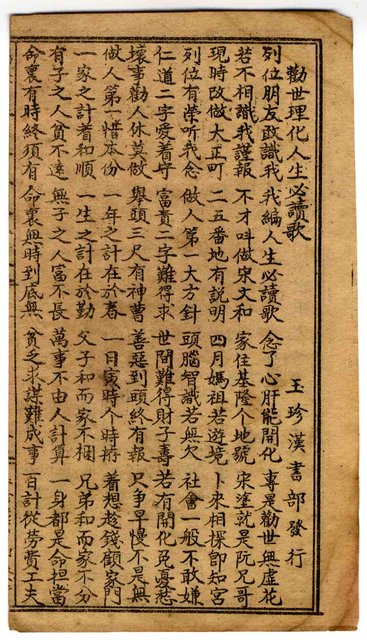 勸世理化人生必讀歌　玉珍漢書部發行
列位朋友政識我　我編人生必讀歌　念了心肝能開化　專是勸世無虛花
若不相識我謹報　不才叫做宋文和　家住基隆個地號　宋塗就是阮兄哥
現時改做大正町　二五番地有說明　四月媽祖若遊境　卜來相探即知宮
列位有榮听我念　做人第一大方針　頭腦智識若無欠　社會一般不敢嫌
仁道二字愛着守　富貴二字難得求　世間難得財子壽　若有開化免憂愁
壞事勸人休莫做　舉頭三尺有神曹　善惡到頭終有報　只爭早慢不是無
做人第一惜本份　一年之計在於春　一日寅時个時　着想趁錢顧家門
一家之計着和順　一生之計在於勤　父子和而家不梱　兄弟和而家不分
有子之人貧不遠　無子之人富不長　萬事不由人計算　一身都是命担當
命裏有時終須有　命裏無時到底無　貧乏求謀難成事　百計從勞費工夫